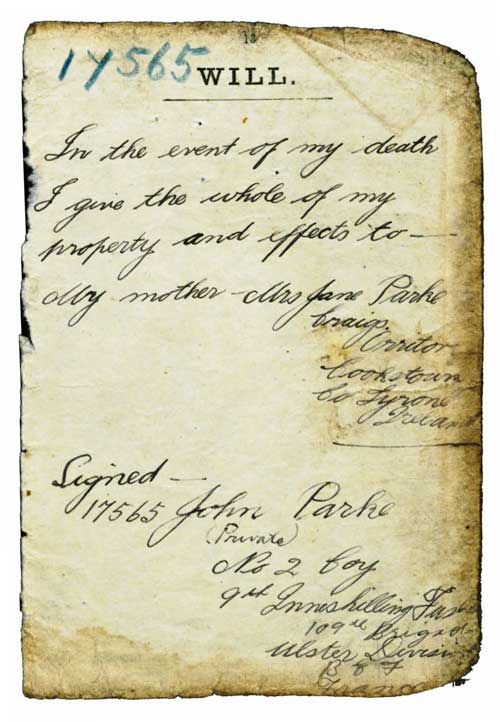 13
17565
WILL.
In the event of my death
I give the whole of my
property and effects to —
My mother – Mrs Jane Parke
Craigs.
Orritor
Cookstown
Co Tyrone
Ireland
Signed —
17565 John Parke
(Private)
No 2 Coy
9th Inniskilling Fus
109th Brigade
Ulster Division
B E F
France